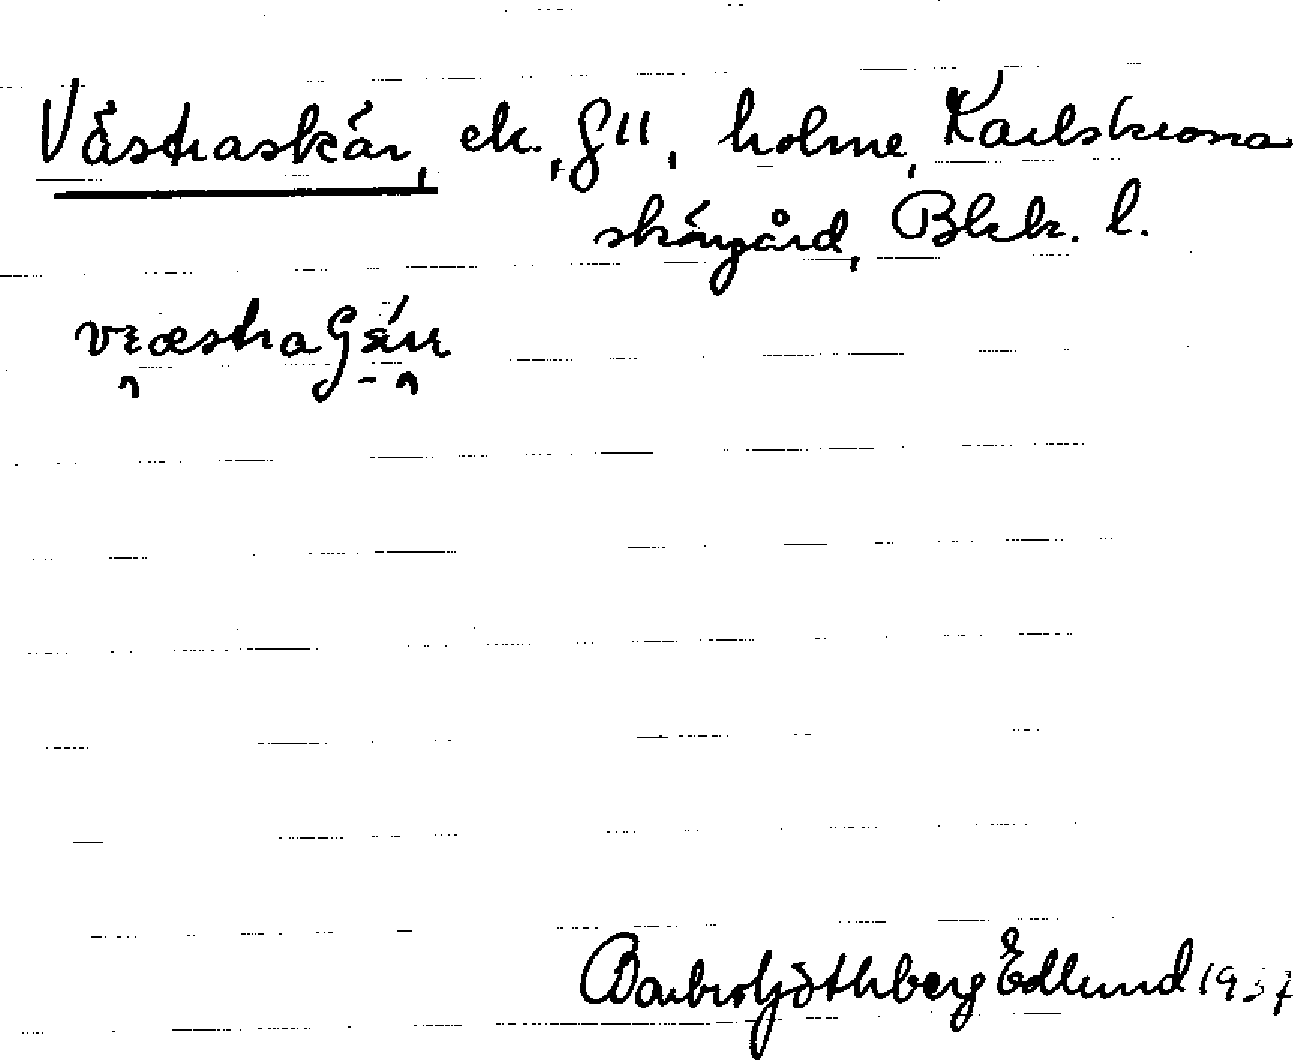 Västraskär, ek., g11, holme, Karlskrona
skärgård, Blek. l.
Barbro Göthberg Edlund 1957